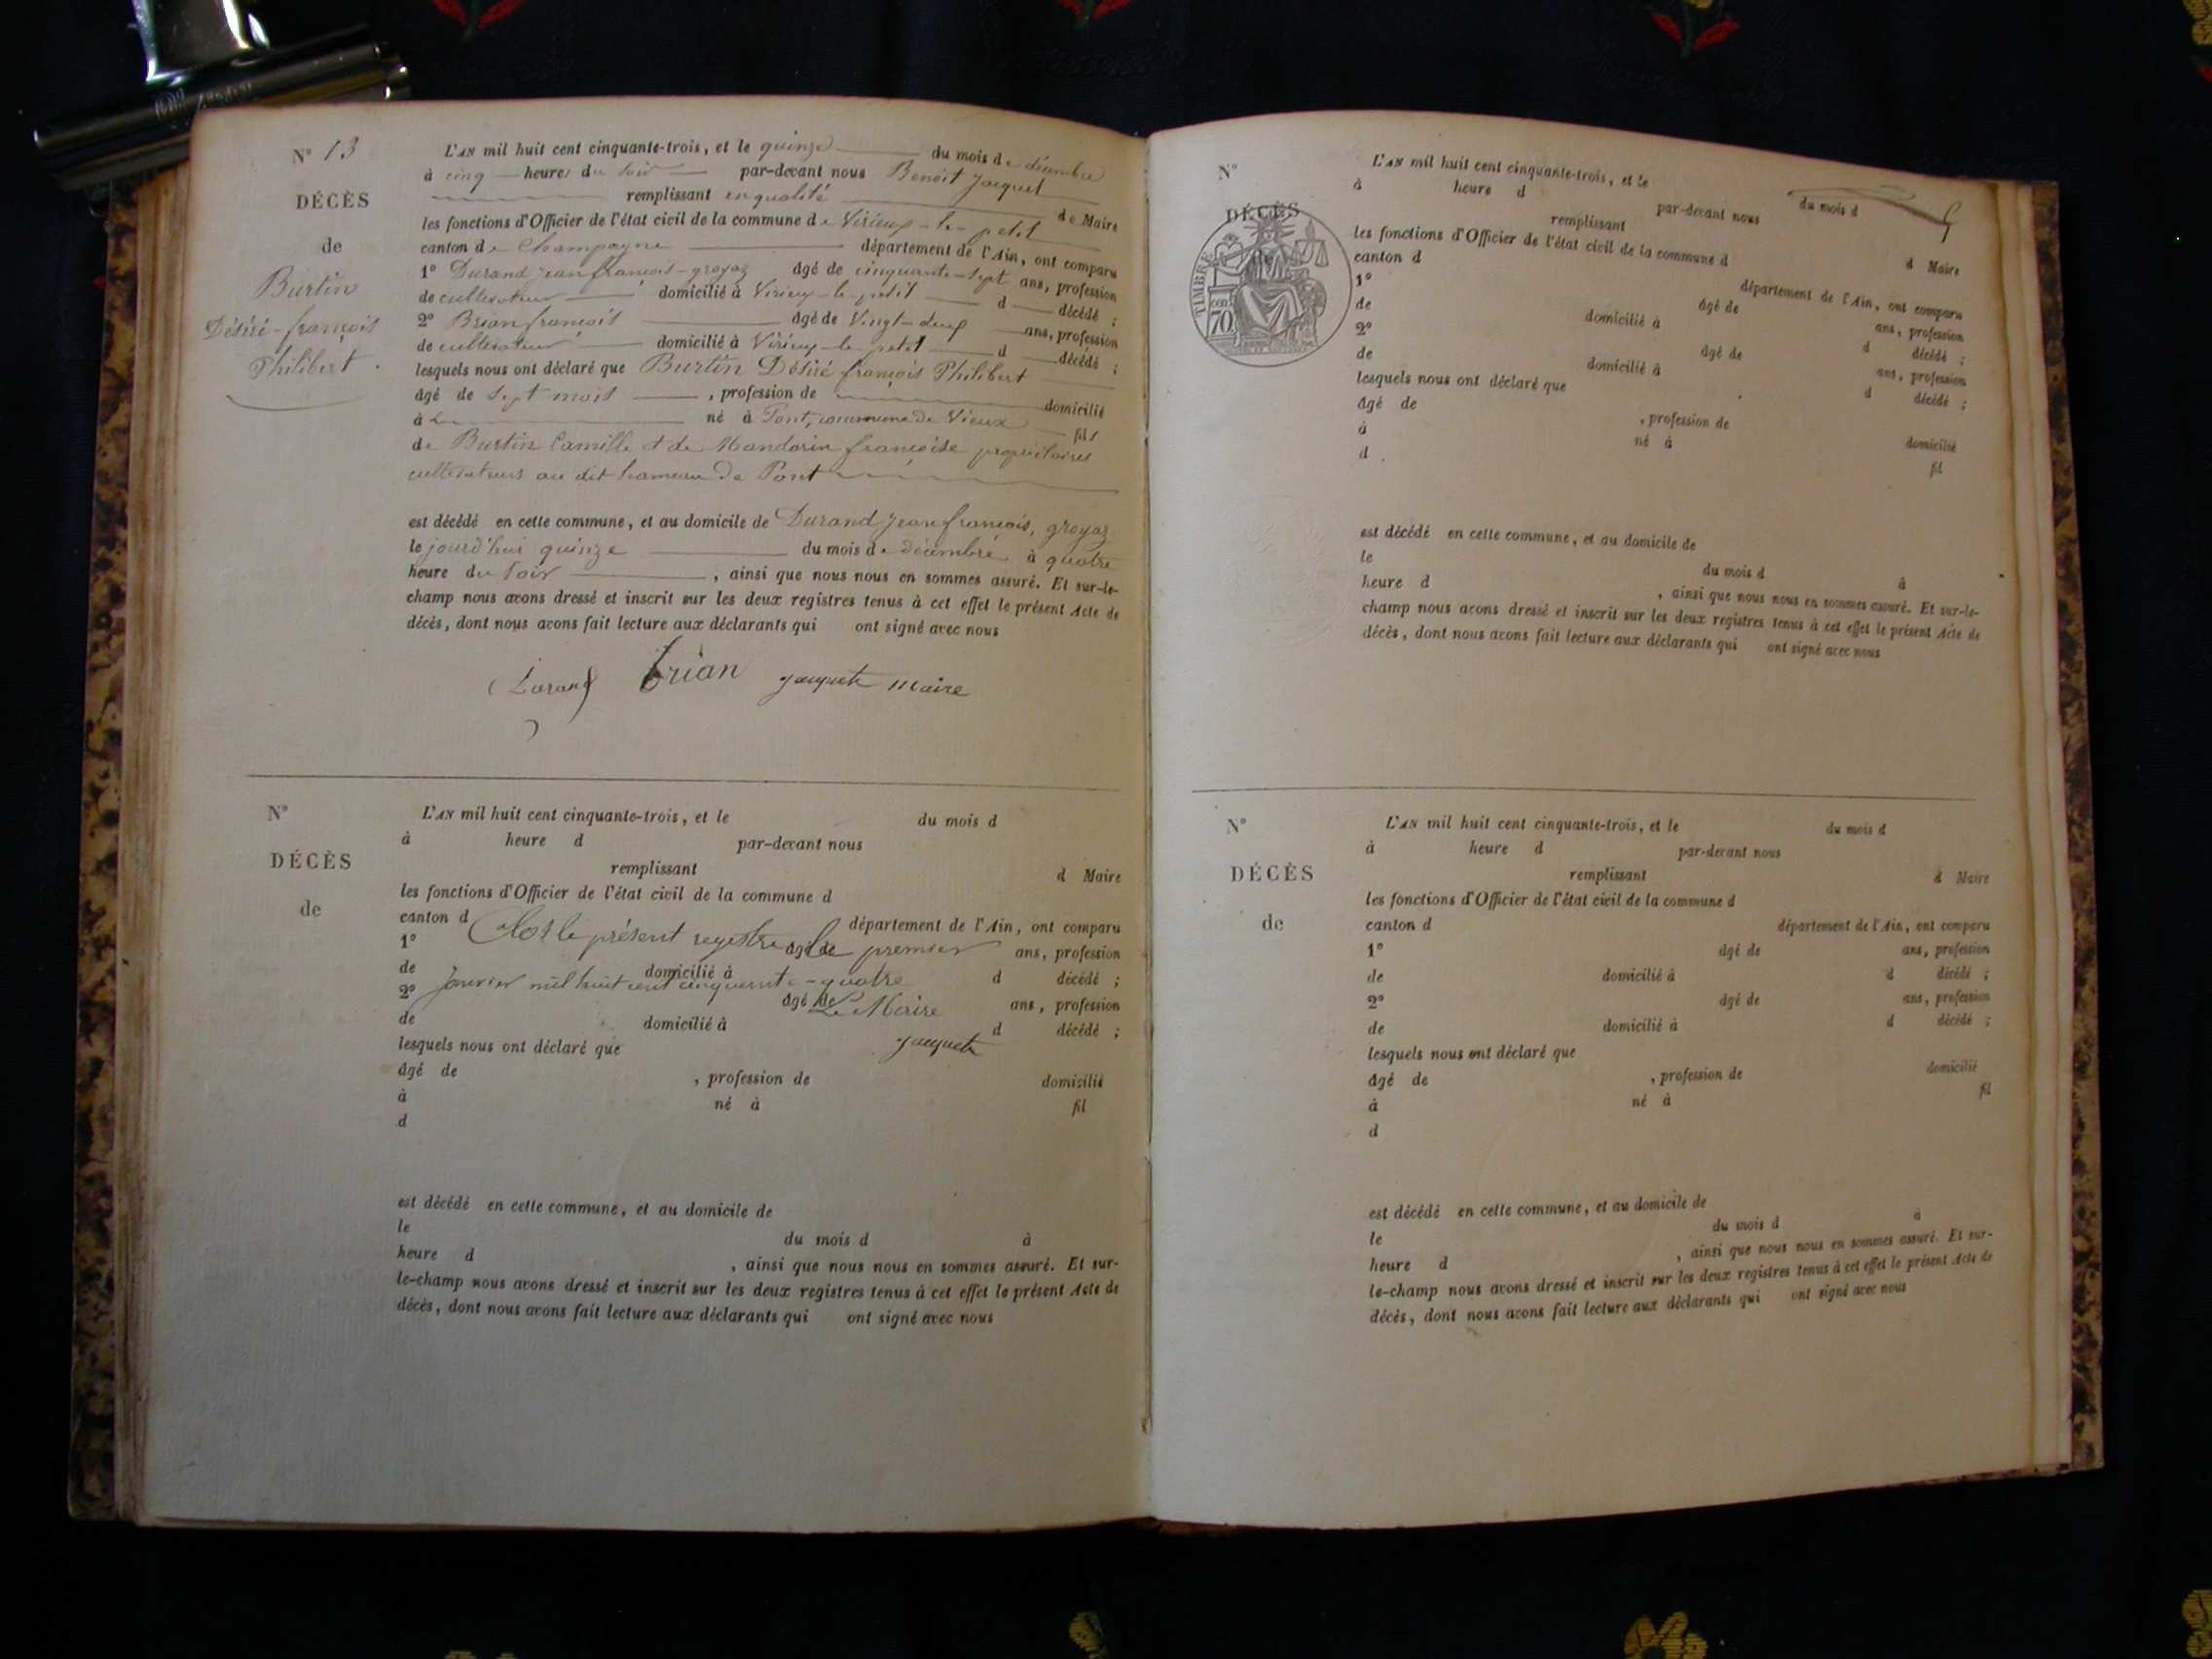 N° 13
DÉCÈS
de
Burtin
Désiré-françois
Philibert.
L'AN mil huit cent cinquante-trois, et le quinze du mois de décembre
à cinq heures du soir par-devant nous Benoit Jacquet
remplissant en qualité de Maire
les fonctions d'Officier de l'état civil de la commune de Virieux-le-petit
canton de Champagne département de l'Ain, ont comparu
1° Durand jean françois-groyaz âgé de cinquante-sept ans, profession
de cultivateur domicilié à Virieux-le-petit d décédé ;
2° Brian françois âgé de Vingt-deux ans, profession
de cultivateur domicilié à Virieux-le-petit d décédé ;
lesquels nous ont déclaré que Burtin Désiré françois Philibert
âgé de sept mois , profession de domicilié
à né à Pont, commune de Vieux fils
de Burtin Camille et de Mandorin françoise propriétaires
cultivateurs au dit hameau de Pont
est décédé en cette commune, et au domicile de Durand jean françois, groyaz
le jourd'hui quinze du mois de décembre à quatre
heure du soir , ainsi que nous nous en sommes assuré. Et sur-le-
champ nous avons dressé et inscrit sur les deux registres tenus à cet effet le présent Acte de
décès, dont nous avons fait lecture aux déclarants qui ont signé avec nous
Durand brian jacquet maire
N°
DÉCÈS
de
L'AN mil huit cent cinquante-trois, et le du mois d
à heure d par-devant nous
remplissant d Maire
les fonctions d'Officier de l'état civil de la commune d
canton d département de l'Ain, ont comparu
Clos le présent registre le premier
1° âgé de ans, profession
de domicilié à d décédé ;
Janvier mil huit cent cinquante-quatre
2° âgé de ans, profession
Le Maire
de domicilié à d décédé ;
jacquet
lesquels nous ont déclaré que
âgé de , profession de domicilié
à né à fil
d
est décédé en cette commune, et au domicile de
le du mois d à
heure d , ainsi que nous nous en sommes assuré. Et sur-
le-champ nous avons dressé et inscrit sur les deux registres tenus à cet effet le présent Acte de
décès, dont nous avons fait lecture aux déclarants qui ont signé avec nous
N°
DÉCÈS
TIMBRE
cent.
70
L'AN mil huit cent cinquante-trois, et le du mois d
à heure d par-devant nous
remplissant d Maire
les fonctions d'Officier de l'état civil de la commune d
canton d département de l'Ain, ont comparu
1° âgé de ans, profession
de domicilié à d décédé ;
2° âgé de ans, profession
de domicilié à d décédé ;
lesquels nous ont déclaré que
âgé de , profession de domicilié
à né à fil
d
est décédé en cette commune, et au domicile de
le du mois d à
heure d , ainsi que nous nous en sommes assuré. Et sur-le-
champ nous avons dressé et inscrit sur les deux registres tenus à cet effet le présent Acte de
décès, dont nous avons fait lecture aux déclarants qui ont signé avec nous
N°
DÉCÈS
de
L'AN mil huit cent cinquante-trois, et le du mois d
à heure d par-devant nous
remplissant d Maire
les fonctions d'Officier de l'état civil de la commune d
canton d département de l'Ain, ont comparu
1° âgé de ans, profession
de domicilié à d décédé ;
2° âgé de ans, profession
de domicilié à d décédé ;
lesquels nous ont déclaré que
âgé de , profession de domicilié
à né à fil
d
est décédé en cette commune, et au domicile de
le du mois d à
heure d , ainsi que nous nous en sommes assuré. Et sur-
le-champ nous avons dressé et inscrit sur les deux registres tenus à cet effet le présent Acte de
décès, dont nous avons fait lecture aux déclarants qui ont signé avec nous